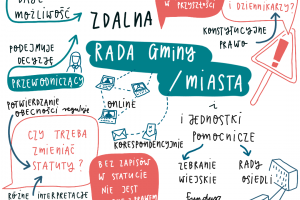 MOŻLIWOŚĆ
ZDALNA
W PRZYSZŁOŚCI
I DZIENNIKARZY?
PODEJMUJE
DECYZJĘ
PRZEWODNICZĄCY
RADA GMINY
/MIASTA
KONSTYTUCYJNE
PRAWO
POTWIERDZANIE
OBECNOŚCI reguluje
ONLINE
KORESPONDENCYJNIE
i
i JEDNOSTKI
POMOCNICZE
CZY TRZEBA
ZMIENIAĆ
STATUTY?
RÓŻNE INTERPRETACJE
BEZ ZAPISÓW
W STATUCIE
NIE JEST
ZEBRANIE
WIEJSKIE
RADY
OSIEDLI